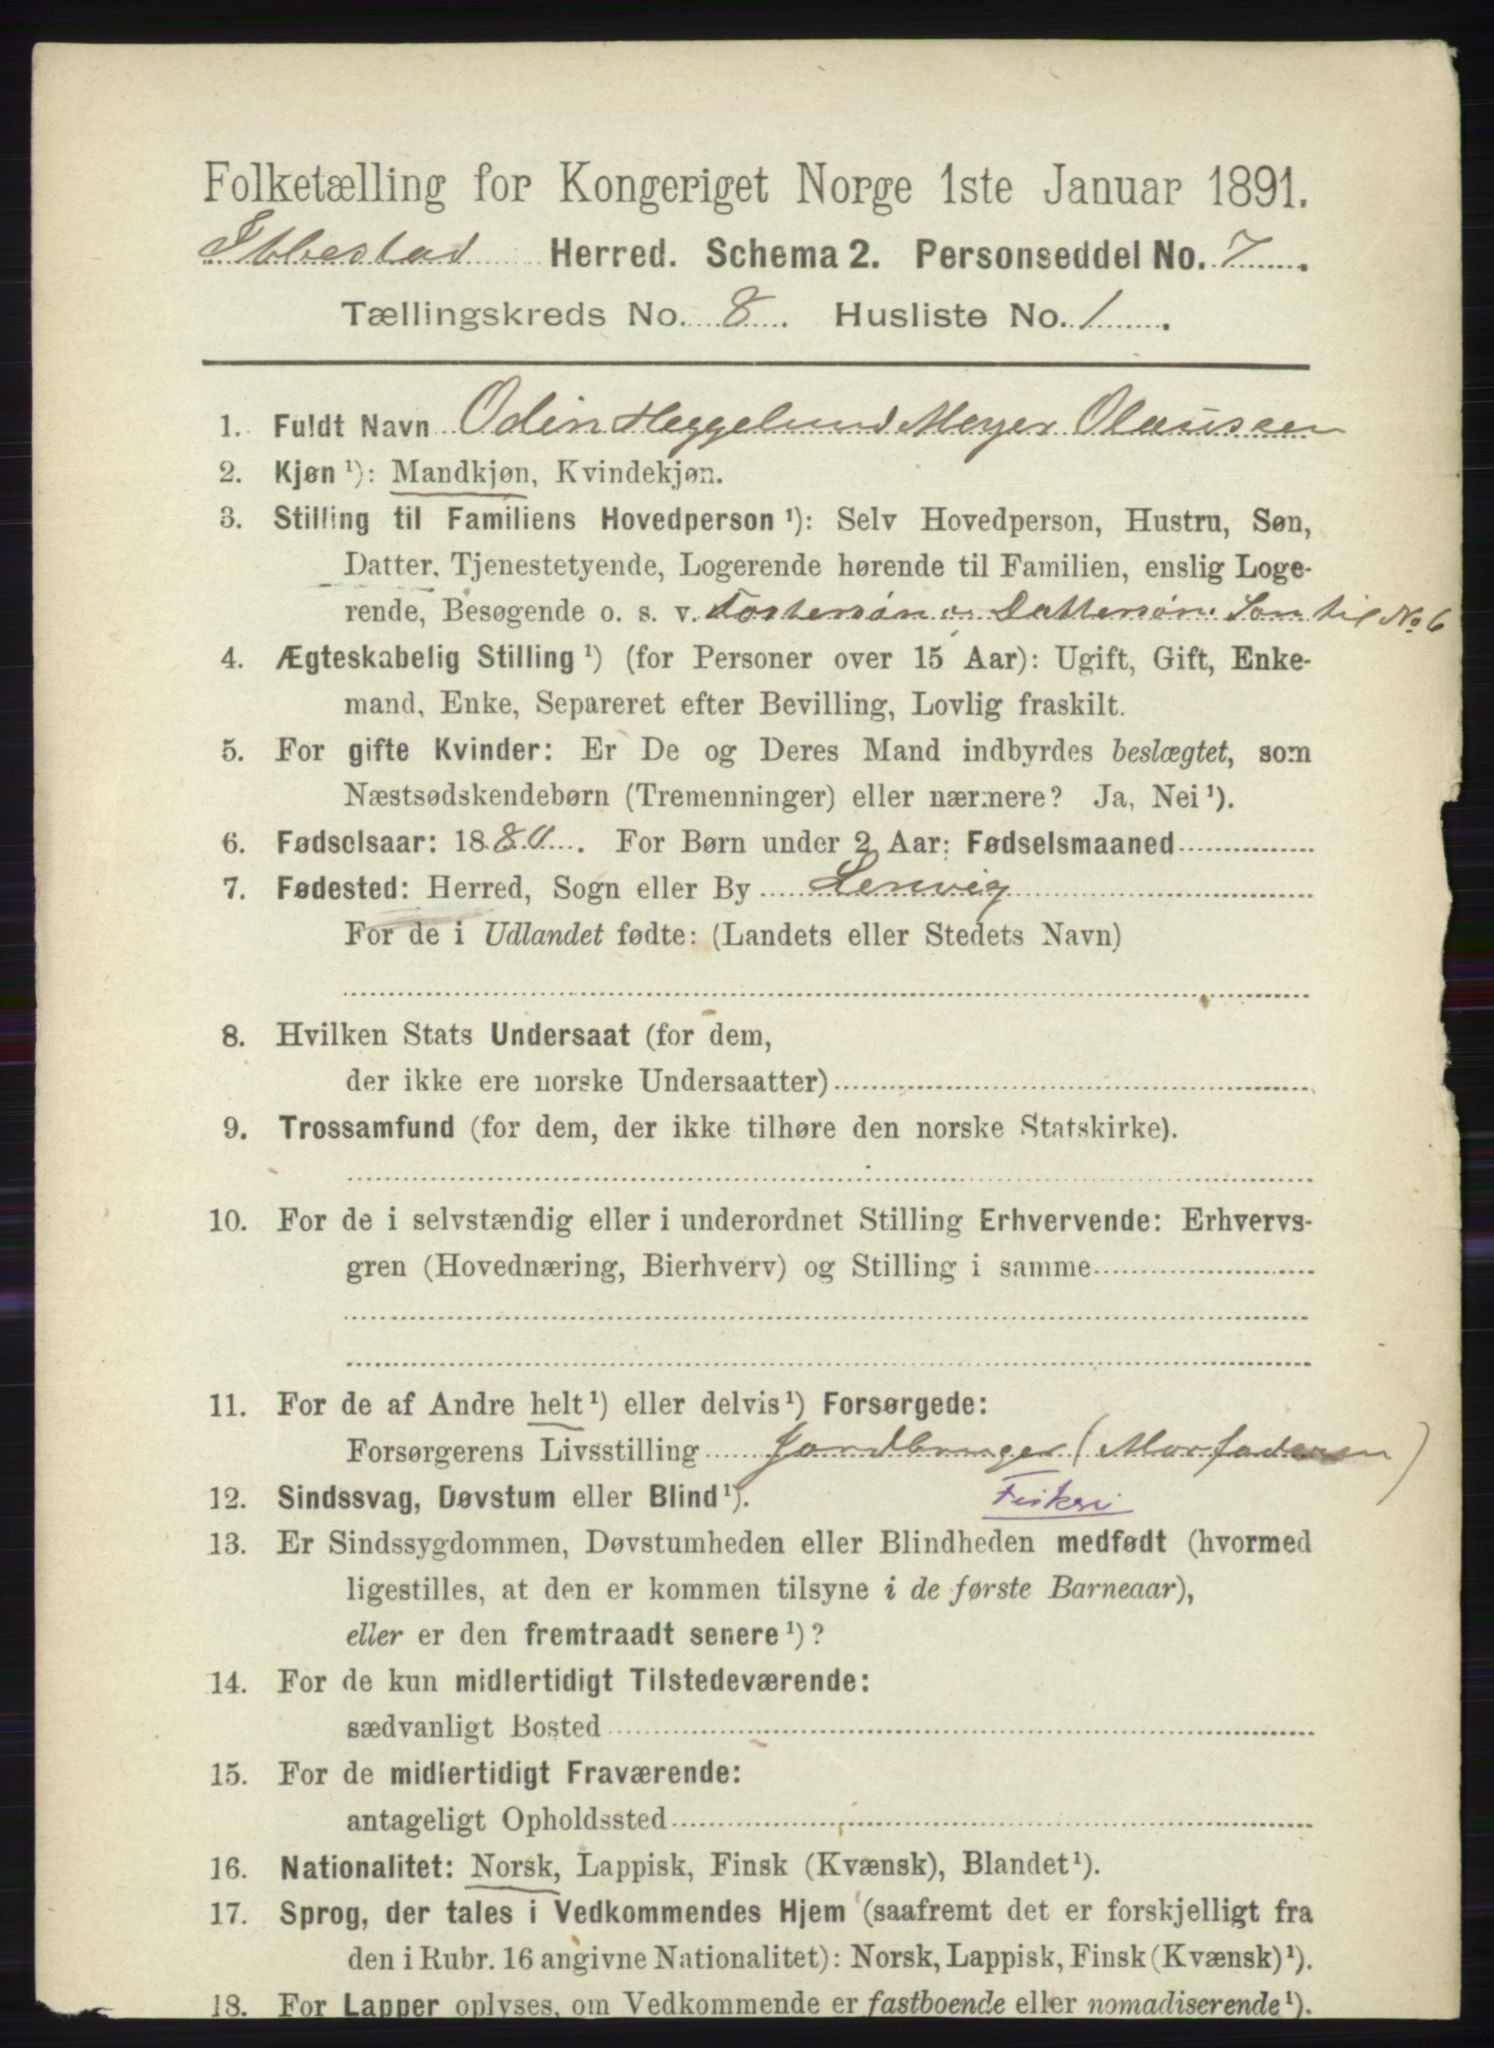 Folketælling for Kongeriget Norge 1ste Januar 1891.
Ibbestad Herred. Schema 2. Personseddel No. 7.
Tællingskreds No. 8. Husliste No. 1.
1. Fuldt Navn Odin Heggelund Meyer Olaussen
2. Kjøn ¹): Mandkjøn, Kvindekjøn.
3. Stilling til Familiens Hovedperson ¹): Selv Hovedperson, Hustru, Søn,
Datter, Tjenestetyende, Logerende hørende til Familien, enslig Loge-
rende, Besøgende o. s. v. Fostersøn Dattersøn. Søn til No 6
4. Ægteskabelig Stilling ¹) (for Personer over 15 Aar): Ugift, Gift, Enke-
mand, Enke, Separeret efter Bevilling, Lovlig fraskilt.
5. For gifte Kvinder: Er De og Deres Mand indbyrdes beslægtet, som
Næstsødskendebørn (Tremenninger) eller nærmere? Ja, Nei ¹).
6. Fødselsaar: 1880. For Børn under 2 Aar: Fødselsmaaned
7. Fødested: Herred, Sogn eller By Lenvig
For de i Udlandet fødte: (Landets eller Stedets Navn)
8. Hvilken Stats Undersaat (for dem,
der ikke ere norske Undersaatter)
9. Trossamfund (for dem, der ikke tilhøre den norske Statskirke).
10. For de i selvstændig eller i underordnet Stilling Erhvervende: Erhvervs-
gren (Hovednæring, Bierhverv) og Stilling i samme
11. For de af Andre helt ¹) eller delvis ¹) Forsørgede:
Forsørgerens Livsstilling Jordbruger (Morfaderen)
12. Sindssvag, Døvstum eller Blind ¹). Fiskeri
13. Er Sindssygdommen, Døvstumheden eller Blindheden medfødt (hvormed
ligestilles, at den er kommen tilsyne i de første Barneaar),
eller er den fremtraadt senere ¹)?
14. For de kun midlertidigt Tilstedeværende:
sædvanligt Bosted
15. For de midlertidigt Fraværende:
antageligt Opholdssted
16. Nationalitet: Norsk, Lappisk, Finsk (Kvænsk), Blandet ¹).
17. Sprog, der tales i Vedkommendes Hjem (saafremt det er forskjelligt fra
den i Rubr. 16 angivne Nationalitet): Norsk, Lappisk, Finsk (Kvænsk) ¹).
18. For Lapper oplyses, om Vedkommende er fastboende eller nomadiserende ¹).